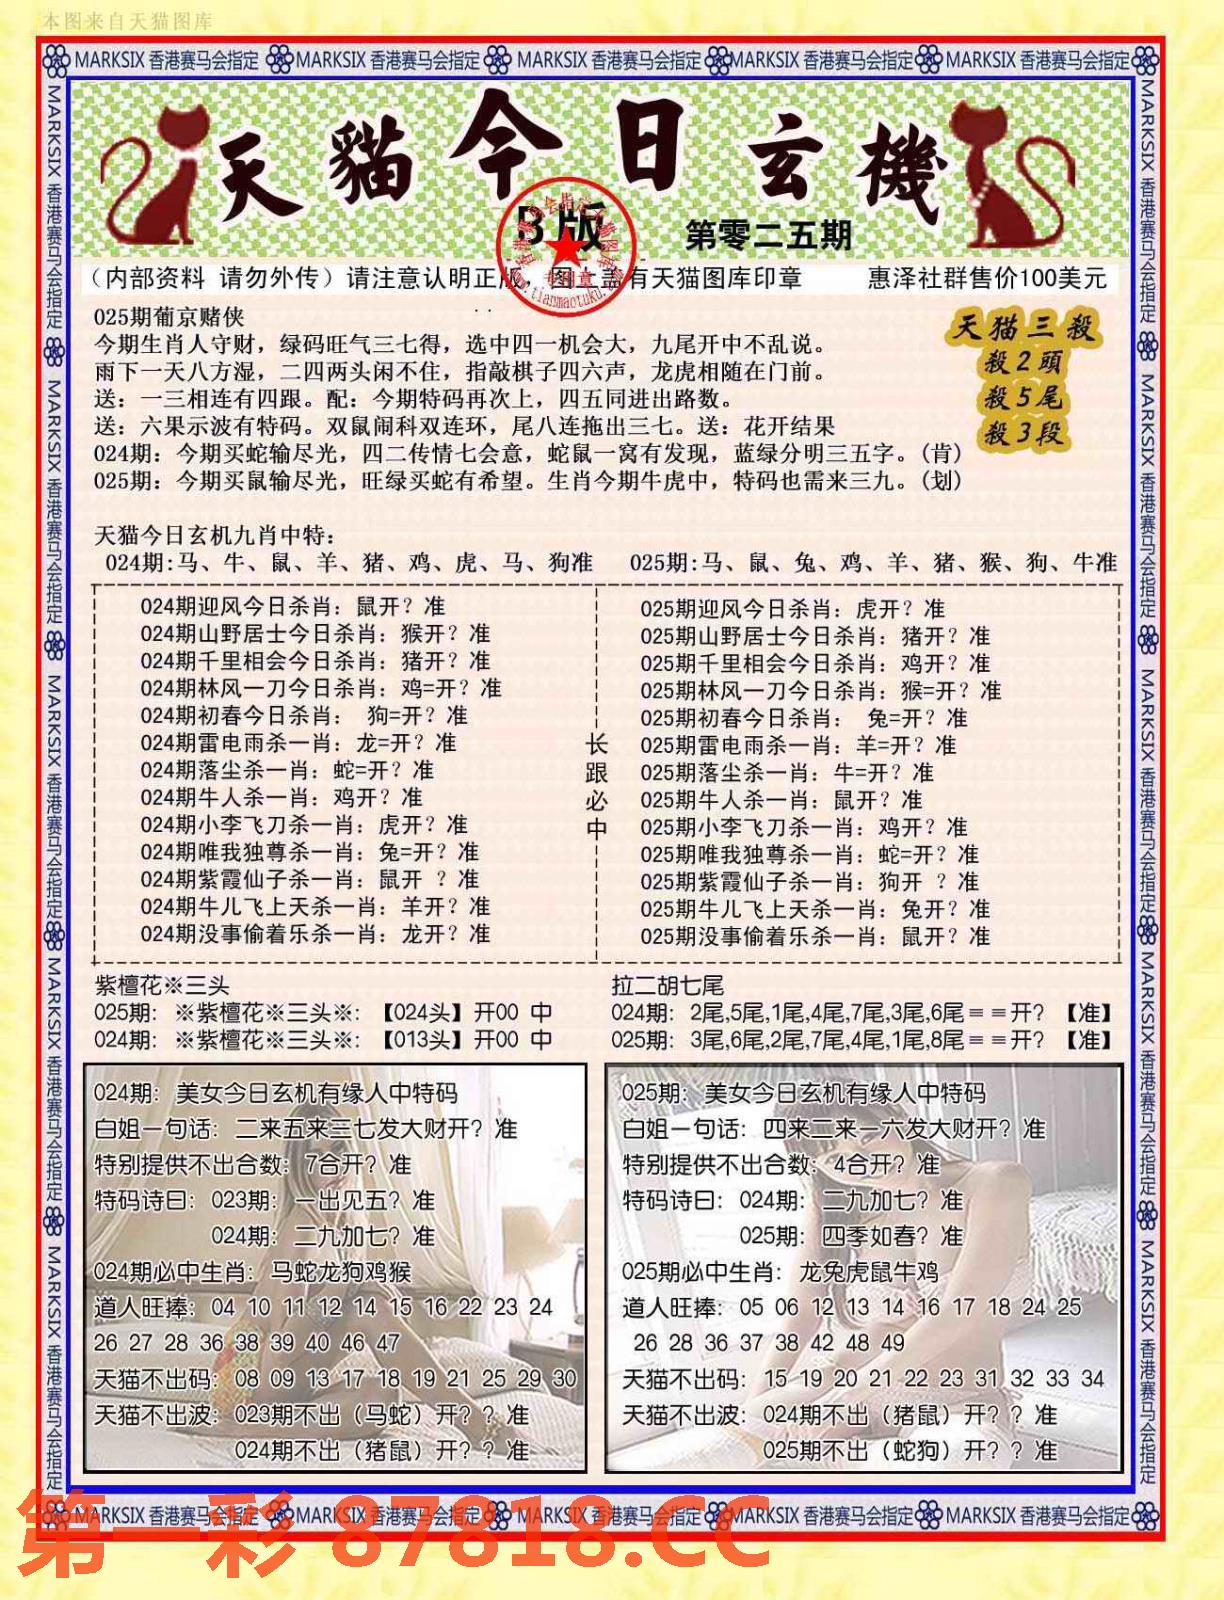 本图来自天猫图库
MARKSIX 香港赛马会指定 MARKSIX 香港赛马会指定 MARKSIX 香港赛马会指定 MARKSIX 香港赛马会指定 MARKSIX 香港赛马会指定
天貓今日玄機
B版
第零二五期
(内部资料 请勿外传) 请注意认明正版 图上盖有天猫图库印章 惠泽社群售价100美元
025期葡京赌侠
今期生肖人守财，绿码旺气三七得，选中四一机会大，九尾开中不乱说。
雨下一天八方湿，二四两头闲不住，指敲棋子四六声，龙虎相随在门前。
送：一三相连有四跟。配：今期特码再次上，四五同进出路数。
送：六果示波有特码。双鼠闹科双连环，尾八连拖出三七。送：花开结果
024期：今期买蛇输尽光，四二传情七会意，蛇鼠一窝有发现，蓝绿分明三五字。(肯)
025期：今期买鼠输尽光，旺绿买蛇有希望。生肖今期牛虎中，特码也需来三九。(划)
天猫三殺
殺2頭
殺5尾
殺3段
天猫今日玄机九肖中特：
024期:马、牛、鼠、羊、猪、鸡、虎、马、狗准 025期:马、鼠、兔、鸡、羊、猪、猴、狗、牛准
024期迎风今日杀肖：鼠开？准
024期山野居士今日杀肖：猴开？准
024期千里相会今日杀肖：猪开？准
024期林风一刀今日杀肖：鸡=开？准
024期初春今日杀肖： 狗=开？准
024期雷电雨杀一肖：龙=开？准
024期落尘杀一肖：蛇=开？准
024期牛人杀一肖：鸡开？准
024期小李飞刀杀一肖：虎开？准
024期唯我独尊杀一肖：兔=开？准
024期紫霞仙子杀一肖：鼠开 ？准
024期牛儿飞上天杀一肖：羊开？准
024期没事偷着乐杀一肖：龙开？准
长跟必中
025期迎风今日杀肖：虎开？准
025期山野居士今日杀肖：猪开？准
025期千里相会今日杀肖：鸡开？准
025期林风一刀今日杀肖：猴=开？准
025期初春今日杀肖： 兔=开？准
025期雷电雨杀一肖：羊=开？准
025期落尘杀一肖：牛=开？准
025期牛人杀一肖：鼠开？准
025期小李飞刀杀一肖：鸡开？准
025期唯我独尊杀一肖：蛇=开？准
025期紫霞仙子杀一肖：狗开 ？准
025期牛儿飞上天杀一肖：兔开？准
025期没事偷着乐杀一肖：鼠开？准
紫檀花※三头
025期：※紫檀花※三头※：【024头】开00 中
024期：※紫檀花※三头※：【013头】开00 中
拉二胡七尾
024期：2尾,5尾,1尾,4尾,7尾,3尾,6尾＝＝开？【准】
025期：3尾,6尾,2尾,7尾,4尾,1尾,8尾＝＝开？【准】
024期：美女今日玄机有缘人中特码
白姐一句话：二来五来三七发大财开？准
特别提供不出合数：7合开？准
特码诗曰：023期：一出见五？准
024期：二九加七？准
024期必中生肖：马蛇龙狗鸡猴
道人旺捧：04 10 11 12 14 15 16 22 23 24
26 27 28 36 38 39 40 46 47
天猫不出码：08 09 13 17 18 19 21 25 29 30
天猫不出波：023期不出（马蛇）开？？准
024期不出（猪鼠）开？？准
025期：美女今日玄机有缘人中特码
白姐一句话：四来二来一六发大财开？准
特别提供不出合数：4合开？准
特码诗曰：024期：二九加七？准
025期：四季如春？准
025期必中生肖：龙兔虎鼠牛鸡
道人旺捧：05 06 12 13 14 16 17 18 24 25
26 28 36 37 38 42 48 49
天猫不出码：15 19 20 21 22 23 31 32 33 34
天猫不出波：024期不出（猪鼠）开？？准
025期不出（蛇狗）开？？准
MARKSIX 香港赛马会指定 MARKSIX 香港赛马会指定 MARKSIX 香港赛马会指定 MARKSIX 香港赛马会指定 MARKSIX 香港赛马会指定
第一彩 87818.CC
MARKSIX 香港赛马会指定 MARKSIX 香港赛马会指定 MARKSIX 香港赛马会指定 MARKSIX 香港赛马会指定 MARKSIX 香港赛马会指定
MARKSIX 香港赛马会指定 MARKSIX 香港赛马会指定 MARKSIX 香港赛马会指定 MARKSIX 香港赛马会指定 MARKSIX 香港赛马会指定